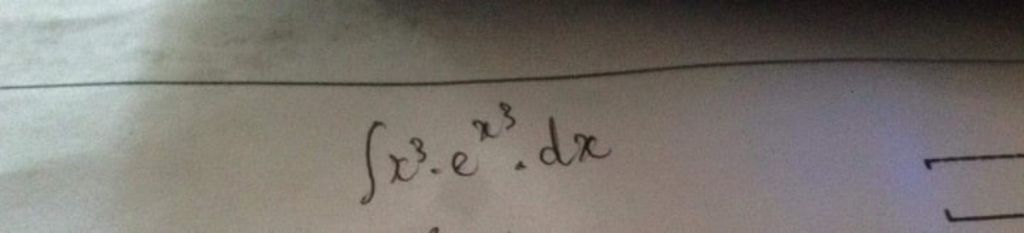 ∫x³.e^{x³}.dx